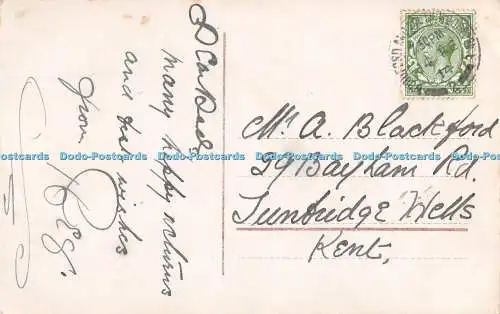 Dear Dad,
many happy returns
and best wishes
from
Reg.
Mr A. Blackford
39 Bayham Rd.
Tunbridge Wells
Kent,
Dodo-Postcards Dodo-Postcards Dodo-Postcards Dodo-Postcards Dodo-Postcards Dodo-Postcards